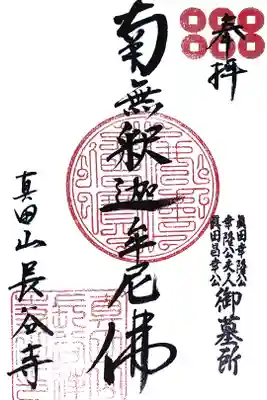 奉拝
眞田幸隆公
幸隆公夫人
眞田昌幸公
御墓所
南無釈迦牟尼佛
真田山長谷寺